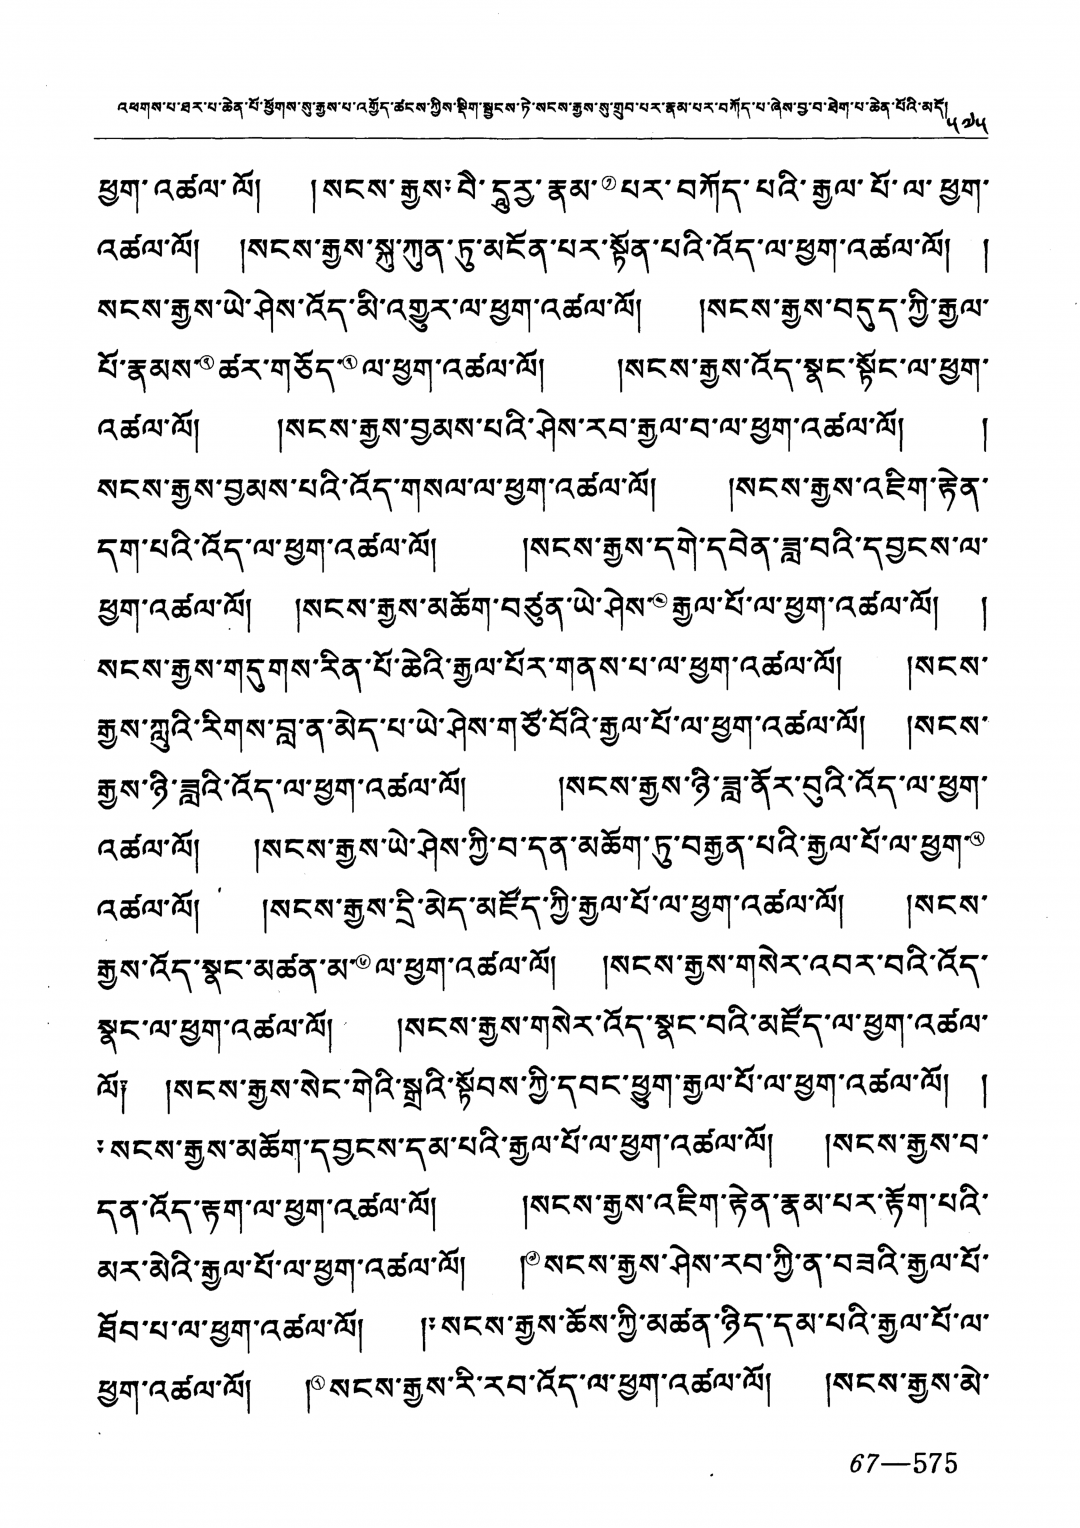 འཕགས་པ་ཐར་པ་ཆེན་པོ་ཕྱོགས་སུ་རྒྱས་པ་འགྱོད་ཚངས་ཀྱིས་སྡིག་སྦྱངས་ཏེ་སངས་རྒྱས་སུ་གྲུབ་པར་རྣམ་པར་བཀོད་པ་ཞེས་བྱ་བ་ཐེག་པ་ཆེན་པོའི་མདོ། ༥༧༥
ཕྱག་འཚལ་ལོ། །སངས་རྒྱས་༔བཻ་དཱུརྱ་རྣམ་①པར་བཀོད་པའི་རྒྱལ་པོ་ལ་ཕྱག་
འཚལ་ལོ། །སངས་རྒྱས་སྐུ་ཀུན་ཏུ་མངོན་པར་སྟོན་པའི་འོད་ལ་ཕྱག་འཚལ་ལོ། །
སངས་རྒྱས་ཡེ་ཤེས་འོད་མི་འགྱུར་ལ་ཕྱག་འཚལ་ལོ། །སངས་རྒྱས་བདུད་ཀྱི་རྒྱལ་
པོ་རྣམས་②ཚར་གཅོད་③ལ་ཕྱག་འཚལ་ལོ། །སངས་རྒྱས་འོད་སྣང་སྟོང་ལ་ཕྱག་
འཚལ་ལོ། །སངས་རྒྱས་བྱམས་པའི་ཤེས་རབ་རྒྱལ་བ་ལ་ཕྱག་འཚལ་ལོ། །
སངས་རྒྱས་བྱམས་པའི་འོད་གསལ་ལ་ཕྱག་འཚལ་ལོ། །སངས་རྒྱས་འཇིག་རྟེན་
དག་པའི་འོད་ལ་ཕྱག་འཚལ་ལོ། །སངས་རྒྱས་དགེ་དབེན་ཟླ་བའི་དབྱངས་ལ་
ཕྱག་འཚལ་ལོ། །སངས་རྒྱས་མཆོག་བཙུན་ཡེ་ཤེས་④རྒྱལ་པོ་ལ་ཕྱག་འཚལ་ལོ། །
སངས་རྒྱས་གདུགས་རིན་པོ་ཆེའི་རྒྱལ་པོར་གནས་པ་ལ་ཕྱག་འཚལ་ལོ། །སངས་
རྒྱས་ཀླུའི་རིགས་བླ་ན་མེད་པ་ཡེ་ཤེས་གཙོ་བོའི་རྒྱལ་པོ་ལ་ཕྱག་འཚལ་ལོ། །སངས་
རྒྱས་ཉི་ཟླའི་འོད་ལ་ཕྱག་འཚལ་ལོ། །སངས་རྒྱས་ཉི་ཟླ་ནོར་བུའི་འོད་ལ་ཕྱག་
འཚལ་ལོ། །སངས་རྒྱས་ཡེ་ཤེས་ཀྱི་བ་དན་མཆོག་ཏུ་བརྒྱན་པའི་རྒྱལ་པོ་ལ་ཕྱག་⑤
འཚལ་ལོ། །སངས་རྒྱས་དྲི་མེད་མཛོད་ཀྱི་རྒྱལ་པོ་ལ་ཕྱག་འཚལ་ལོ། །སངས་
རྒྱས་འོད་སྣང་མཚན་མ་⑥ལ་ཕྱག་འཚལ་ལོ། །སངས་རྒྱས་གསེར་འབར་བའི་འོད་
སྣང་ལ་ཕྱག་འཚལ་ལོ། །སངས་རྒྱས་གསེར་འོད་སྣང་བའི་མཛོད་ལ་ཕྱག་འཚལ་
ལོ༔ །སངས་རྒྱས་སེང་གེའི་སྒྲའི་སྟོབས་ཀྱི་དབང་ཕྱུག་རྒྱལ་པོ་ལ་ཕྱག་འཚལ་ལོ། །
༔སངས་རྒྱས་མཆོག་དབྱངས་དམ་པའི་རྒྱལ་པོ་ལ་ཕྱག་འཚལ་ལོ། །སངས་རྒྱས་བ་
དན་འོད་རྟག་ལ་ཕྱག་འཚལ་ལོ། །སངས་རྒྱས་འཇིག་རྟེན་རྣམ་པར་རྟོག་པའི་
མར་མེའི་རྒྱལ་པོ་ལ་ཕྱག་འཚལ་ལོ། །⑦སངས་རྒྱས་ཤེས་རབ་ཀྱི་ན་བཟའི་རྒྱལ་པོ་
ཐོབ་པ་ལ་ཕྱག་འཚལ་ལོ། །༔སངས་རྒྱས་ཆོས་ཀྱི་མཚན་ཉིད་དམ་པའི་རྒྱལ་པོ་ལ་
ཕྱག་འཚལ་ལོ། །⑧སངས་རྒྱས་རི་རབ་འོད་ལ་ཕྱག་འཚལ་ལོ། །སངས་རྒྱས་མེ་
67—575